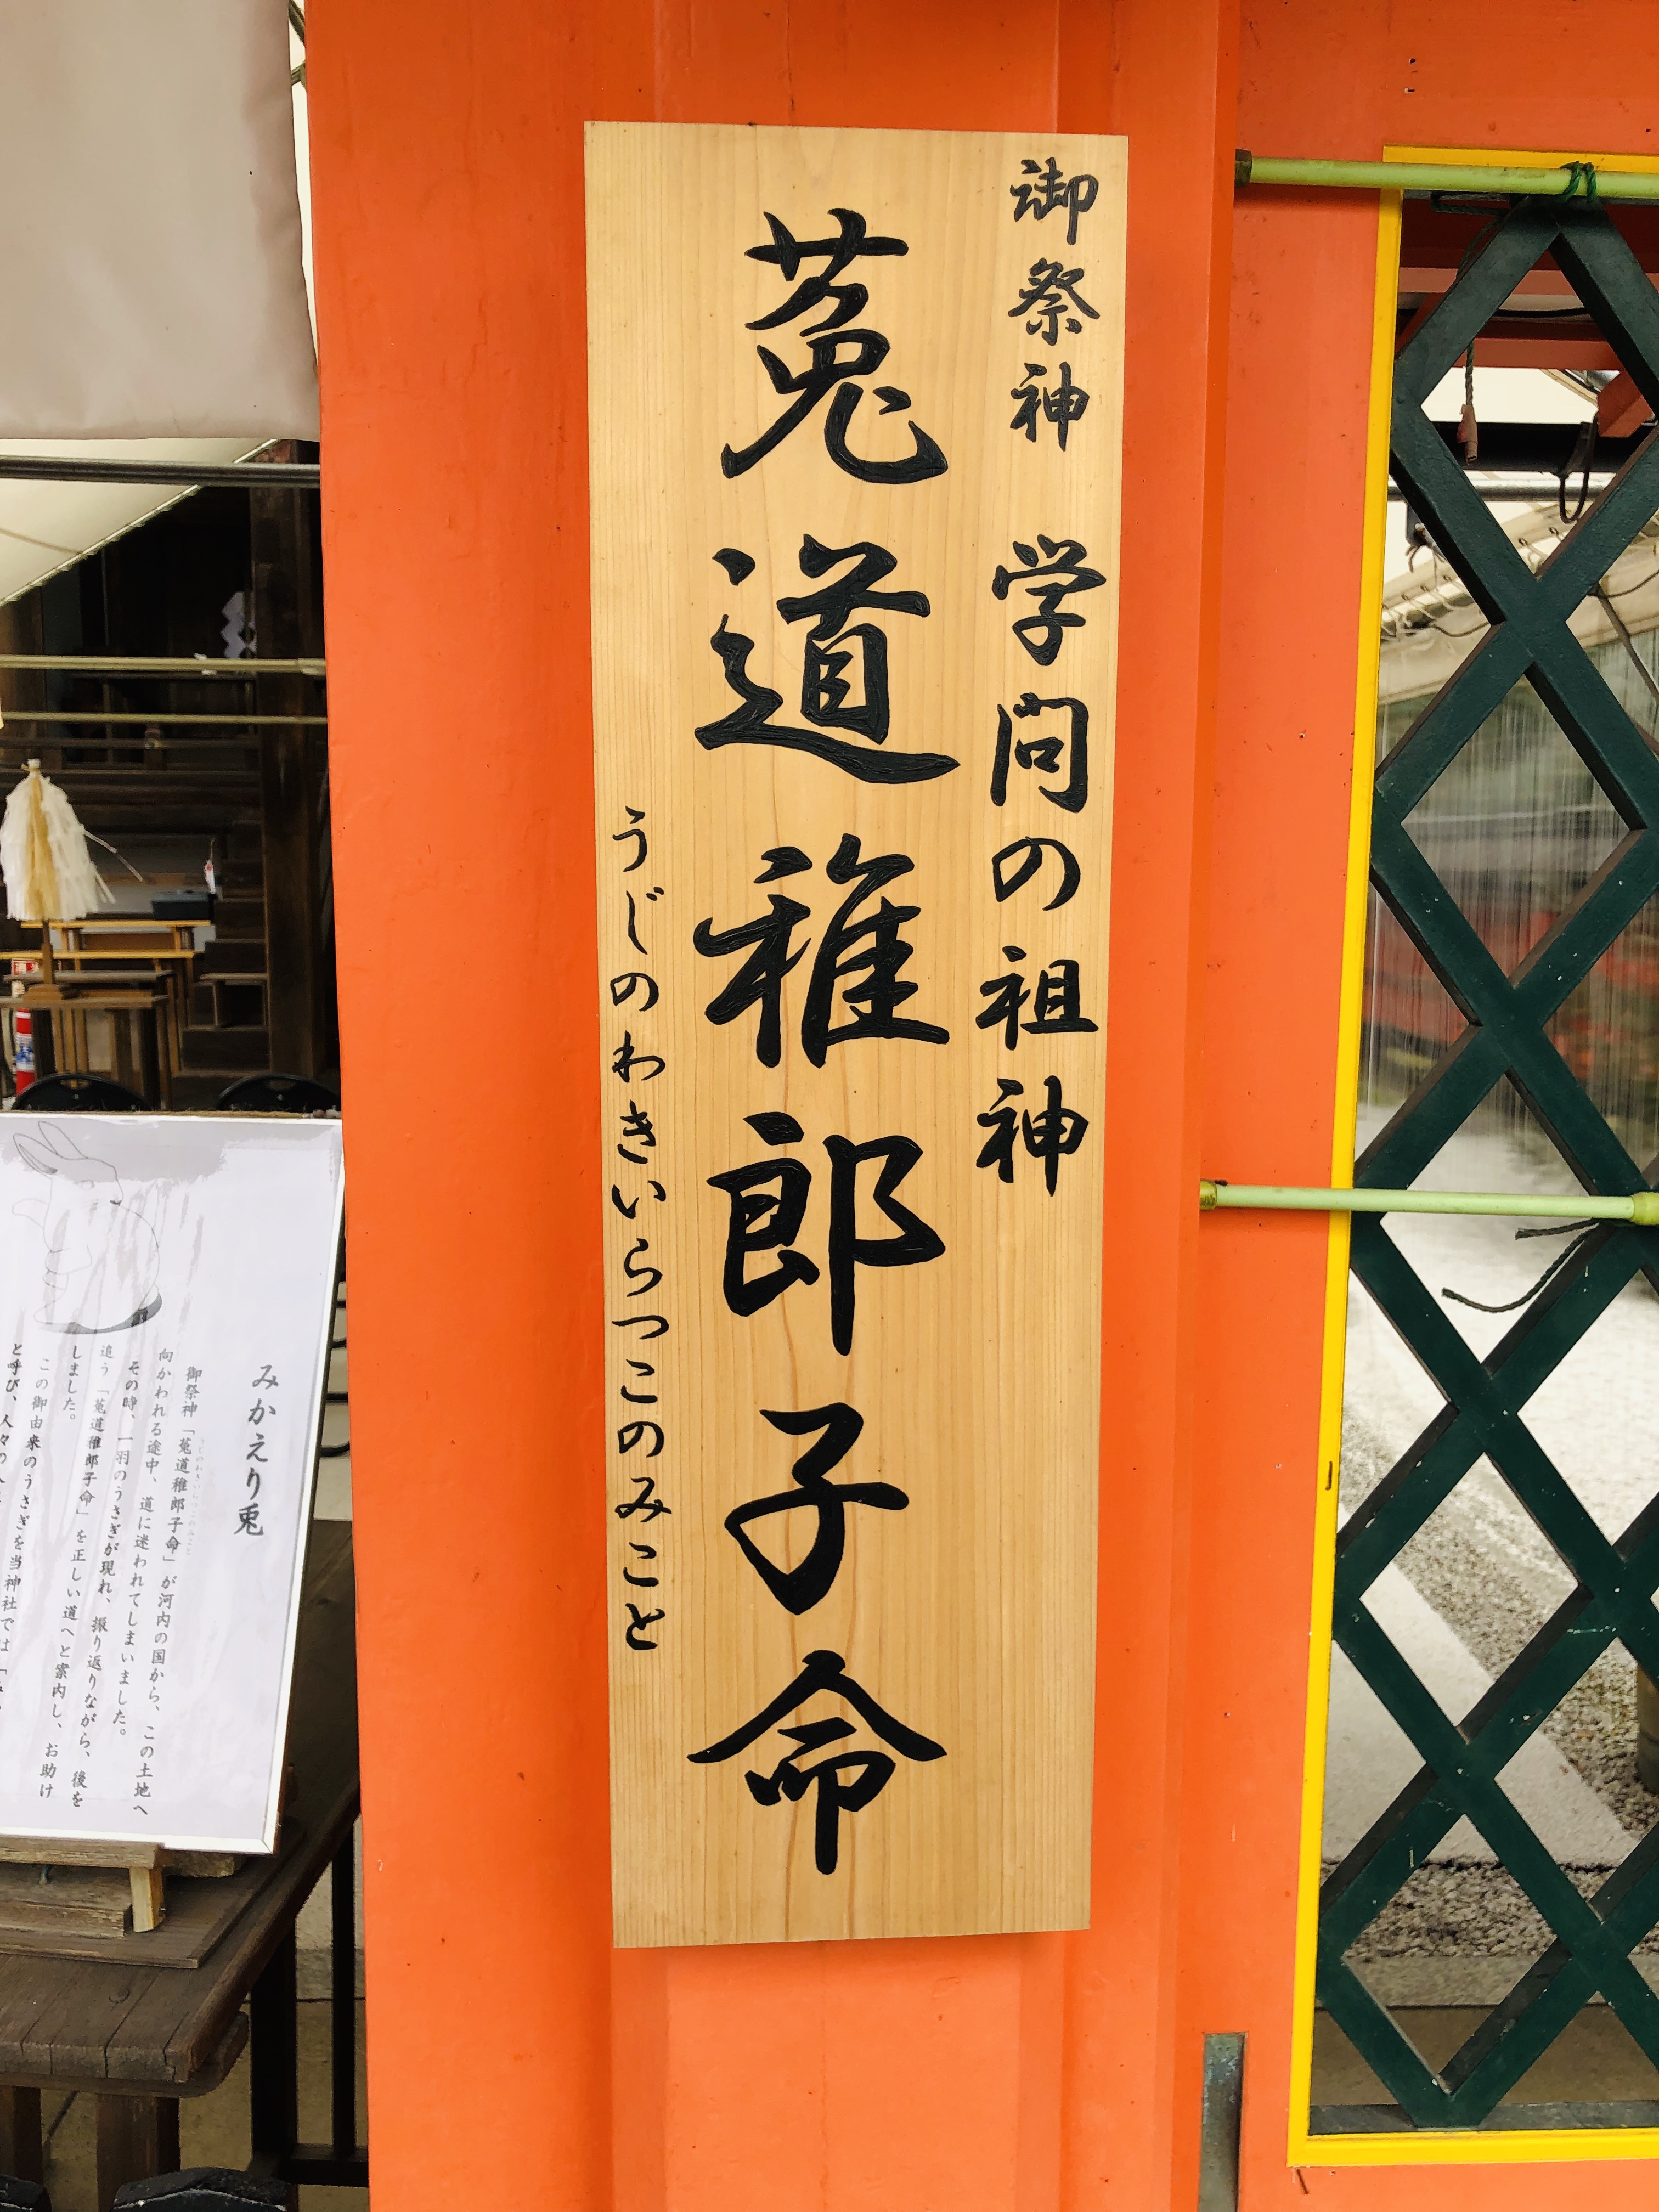 御祭神 学問の祖神
菟道稚郎子命
うじのわきいらつこのみこと
みかえり兎
御祭神「菟道稚郎子命」が河内の国から、この土地へ
向かわれる途中、道に迷われてしまいました。
その時、一羽のうさぎが現れ、振り返りながら、後を
追う「菟道稚郎子命」を正しい道へと案内し、お助け
しました。
この御由来のうさぎを当神社では「み
と呼び、人々の